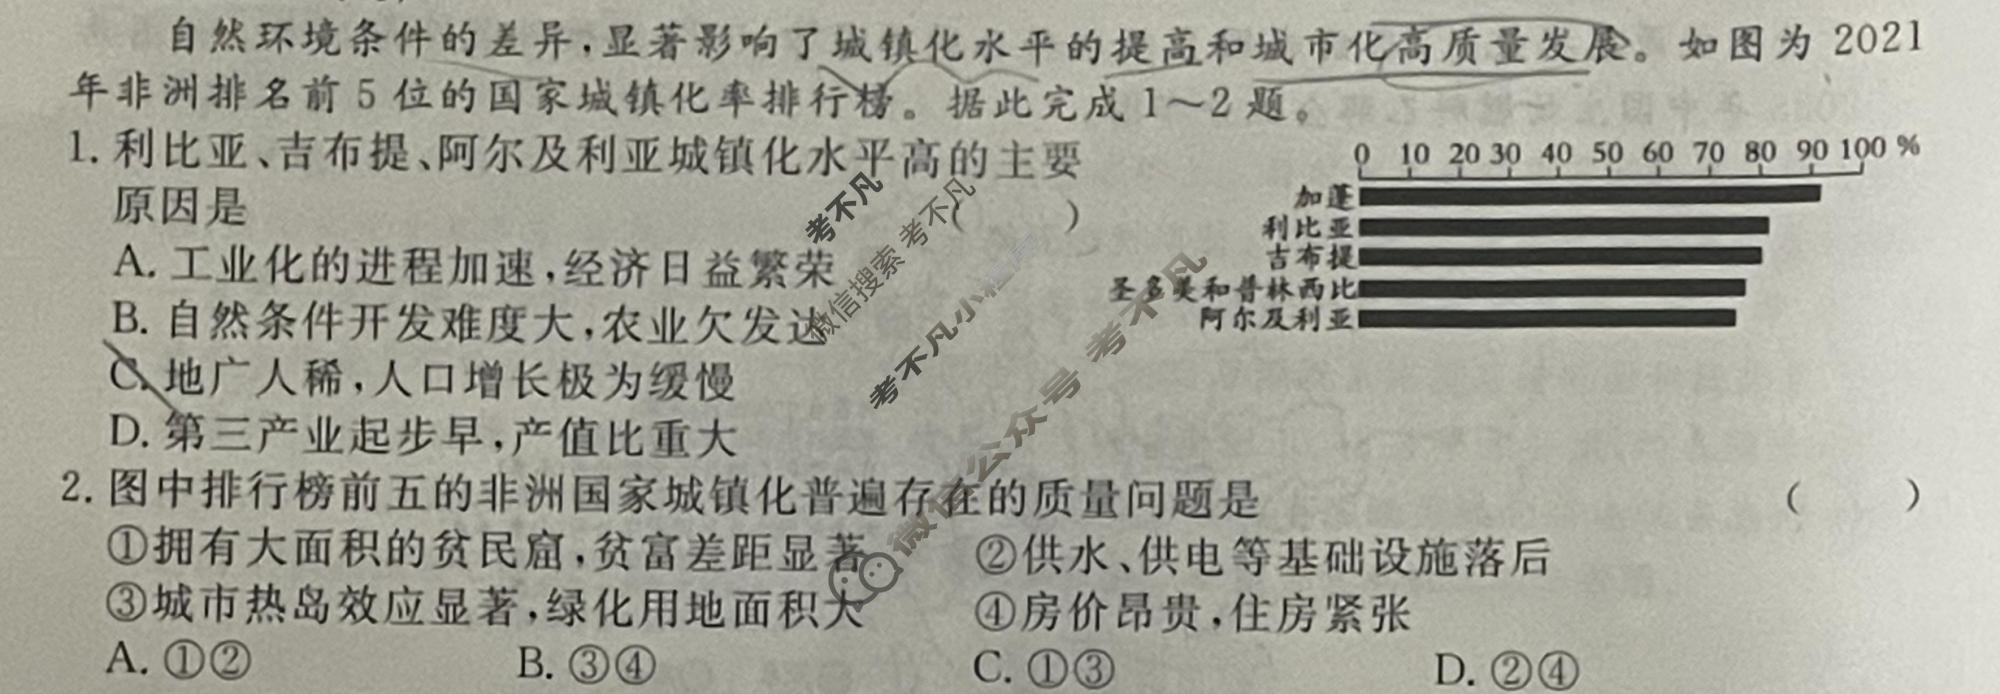 自然环境条件的差异,显著影响了城镇化水平的提高和城市化高质量发展。如图为 2021
年非洲排名前 5 位的国家城镇化率排行榜。据此完成 1～2 题。
1. 利比亚、吉布提、阿尔及利亚城镇化水平高的主要
原因是 ( )
A. 工业化的进程加速,经济日益繁荣
B. 自然条件开发难度大,农业欠发达
C. 地广人稀,人口增长极为缓慢
D. 第三产业起步早,产值比重大
0 10 20 30 40 50 60 70 80 90 100 %
加蓬
利比亚
吉布提
圣多美和普林西比
阿尔及利亚
2. 图中排行榜前五的非洲国家城镇化普遍存在的质量问题是 ( )
①拥有大面积的贫民窟,贫富差距显著 ②供水、供电等基础设施落后
③城市热岛效应显著,绿化用地面积大 ④房价昂贵,住房紧张
A. ①② B. ③④ C. ①③ D. ②④
考不凡
微信搜索 考不凡
考不凡小程序
微信公众号 考不凡